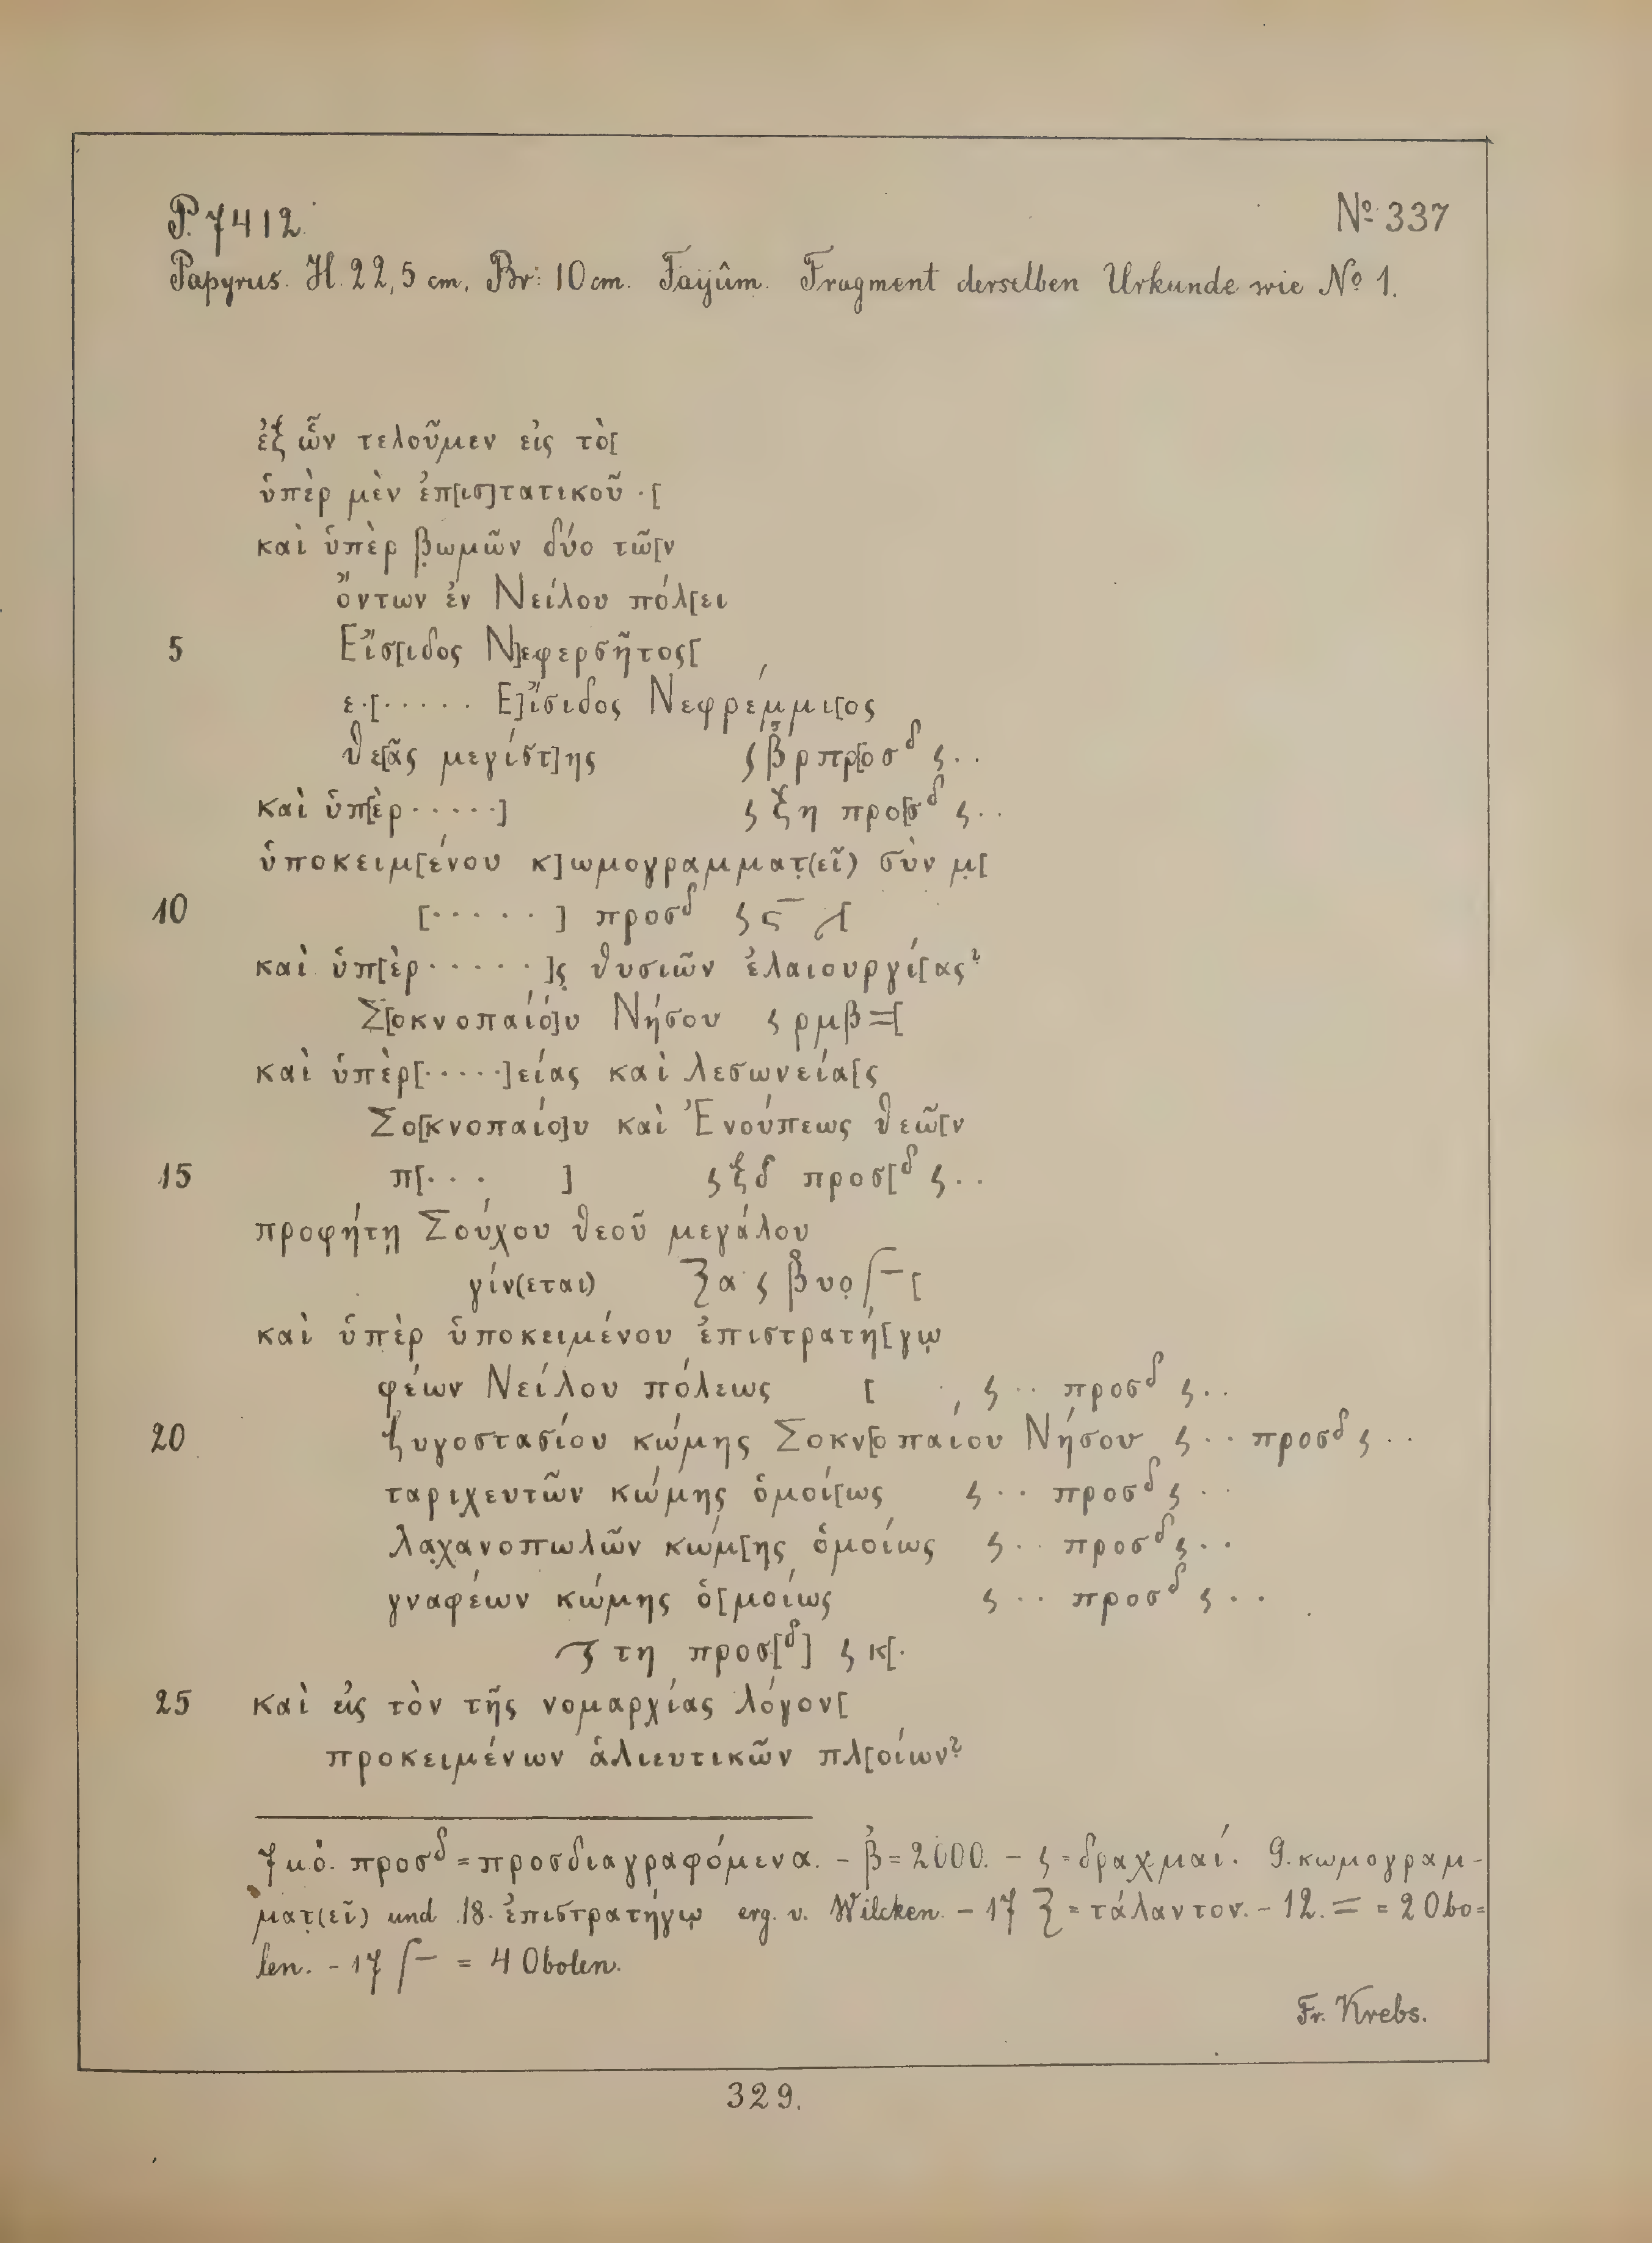 P. 7412.
№ 337
Papyrus. H. 22,5 cm. Br: 10 cm. Faijûm. Fragment derselben Urkunde wie № 1.
ἐξ ὧν τελοῦμεν εἰς τὸ[
ὑπὲρ μὲν ἐπ[ισ]τατικοῦ ·[
καὶ ὑπὲρ β̣ωμῶν δύο τῶ[ν
ὄντων ἐν Νείλου πόλ[ει
5 Εἴσ[ιδος Ν]εφερσῆτος[
ε·[····· Ε]ἴσιδος Νεφρέμμι[ος
θε[ᾶς μεγίστ]ης ϛ β ρ πρ[οσδ ϛ··
καὶ ὑπ[ὲρ ·····] ϛ ξη προ[σδ ϛ··
ὑποκειμ[ένου κ]ωμογραμματ̣(εῖ) σὺν μ̣[
10 [·····] προσδ ϛ ϛ – [
καὶ ὑπ[ὲρ ·····]ς̣ θυσιῶν ἐλαιουργί[ας?
Σ[οκνοπαίο]υ Νήσου ϛ ρμβ=[
καὶ ὑπὲρ[·····]είας καὶ λεσωνεία[ς
Σο[κνοπαίο]υ καὶ Ἐνούπεως θεῶ[ν
15 π[··· ] ϛ ξδ προσ[δ ϛ··
προφήτῃ Σούχου θεοῦ μεγάλου
γίν(εται) ξ α ϛ β υο̣ ʃ–[
καὶ ὑπὲρ ὑποκειμένου ἐπιστρατή[γῳ
φέων Νείλου πόλεως [ ϛ ·· προσδ ϛ··
20 ζυγοστασίου κώμης Σοκν[οπαίου Νήσου ϛ ·· προσδ ϛ ··
ταριχευτῶν κώμης ὁμοί[ως ϛ ·· προσδ ϛ ··
λα̣χανοπωλῶν κώμ[ης ὁμοίως ϛ ·· προσδ ϛ··
γναφέων κώμης ὁ[μοίως ϛ ·· προσδ ϛ ··
ϛ τη προσ[δ] ϛ κ[·
25 καὶ εἰς τὸν τῆς νομαρχίας λόγον[
προκειμένων ἁλιευτικῶν πλ[οίων?
7 u. ö. προσδ = προσδιαγραφόμενα. – β = 2000. – ϛ = δραχμαί. 9. κωμογραμ-
ματ̣(εῖ) und 18. ἐπιστρατήγῳ erg. v. Wilcken. – 17 ξ = τάλαντον. – 12. = = 2 Obo=
len. – 17 ʃ– = 4 Obolen.
Fr. Krebs.
329.